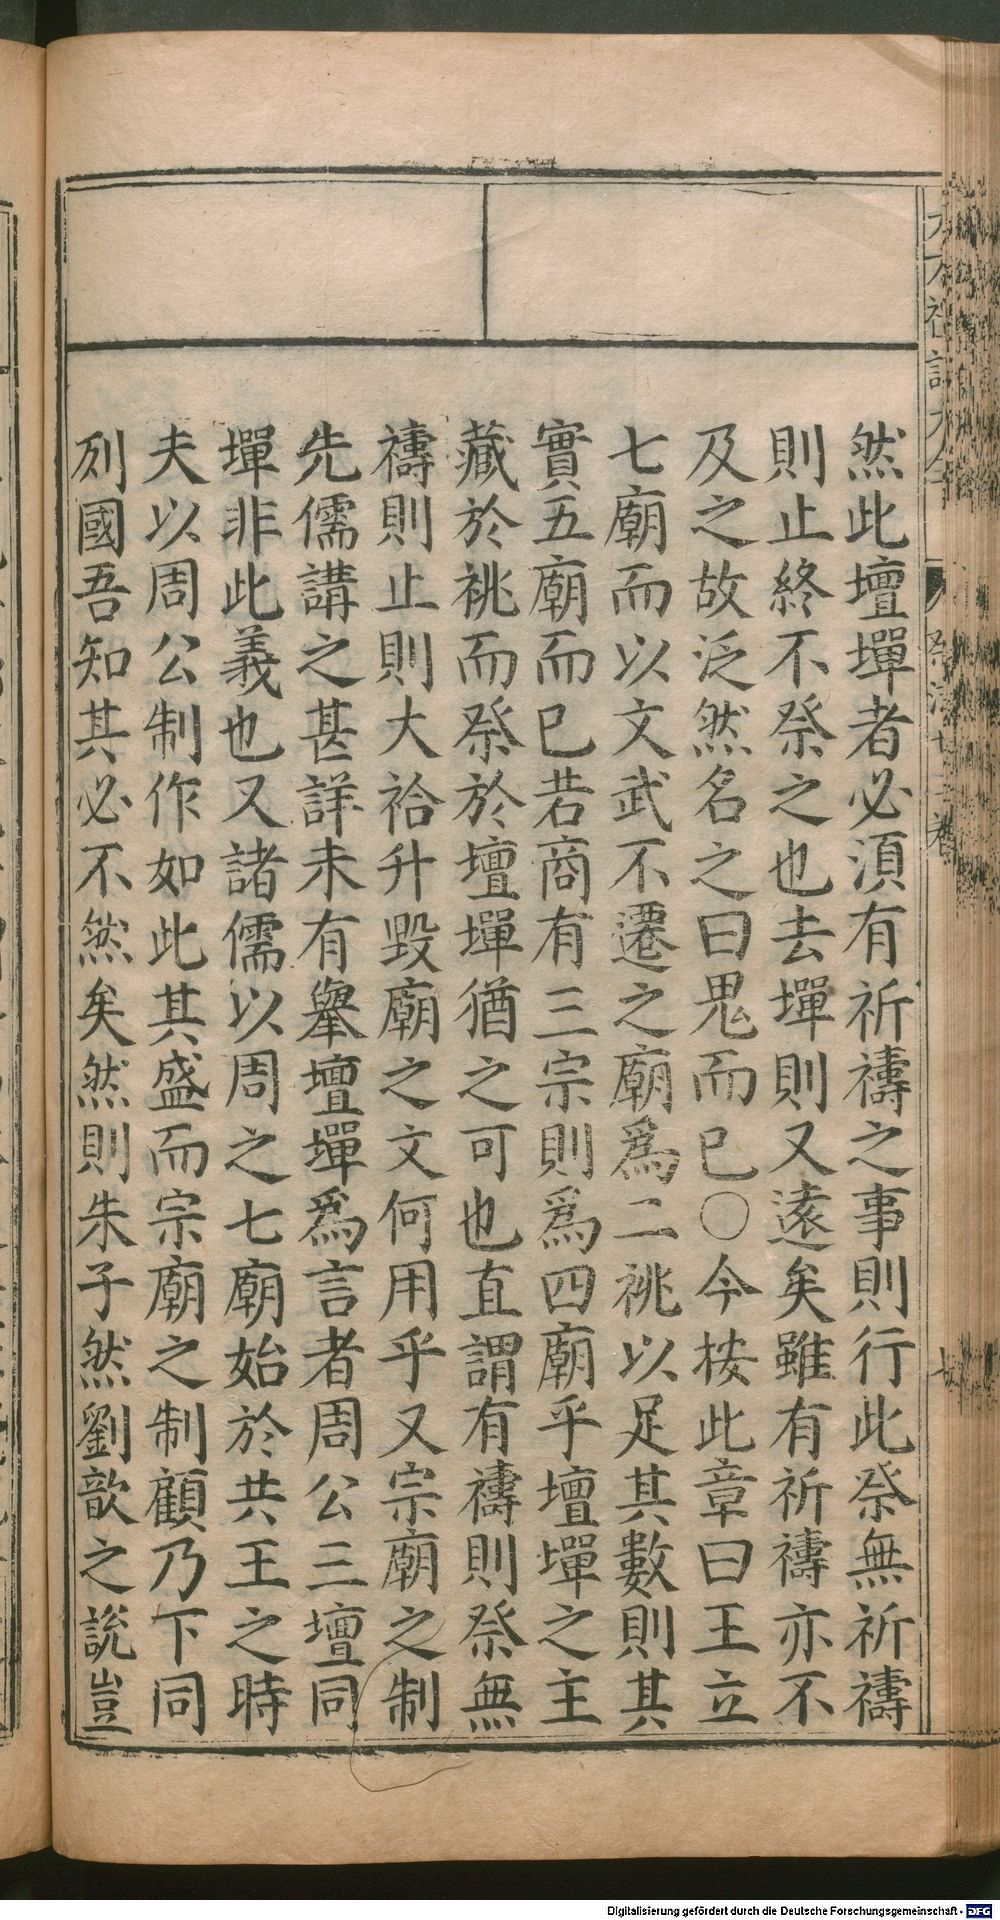 然此壇墠者必湏有祈禱之事則行此祭無祈禱
則止終不祭之也去墠則又遠矣雖有祈禱亦不
及之故泛然名之曰鬼而已○今按此章曰王立
七廟而以文武不遷之廟爲二祧以足其數則其
實五廟而已若商有三宗則爲四廟乎壇墠之主
藏於祧而祭於壇墠猶之可也直謂有禱則祭無
禱則止則大祫升毀廟之文何用乎又宗廟之制
先儒講之甚詳未有舉壇墠爲言者周公三壇同
墠非此義也又諸儒以周之七廟始於共王之時
夫以周公制作如此其盛而宗廟之制顧乃下同
列國吾知其必不然矣然則朱子然劉歆之說豈
祭法 卷
七
Digitalisierung gefördert durch die Deutsche Forschungsgemeinschaft - DFG